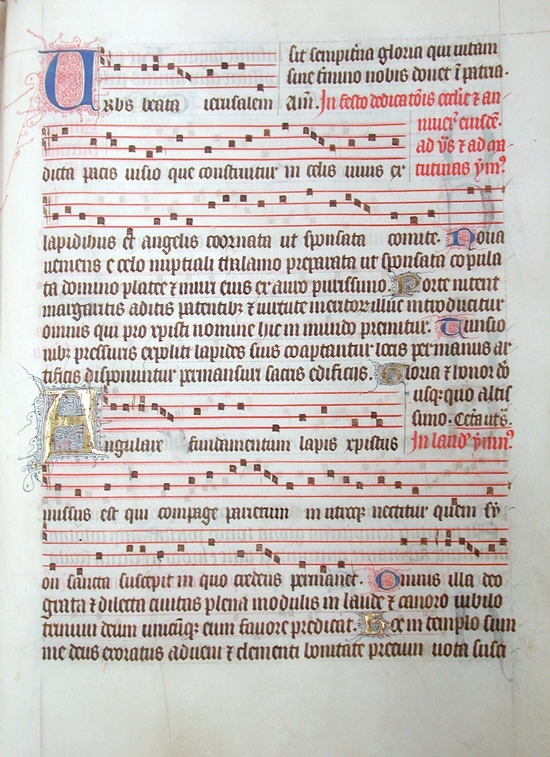 sit sempitʼna gloria qui uitam
Urbs beata ierusalem
sine tʼmino nobis donet ī patria.
Am̄. In festo dedicatōis ecclīe et an
niuerʼ eiusdē.
ad vʼs ⁊ ad ma
tutinas ẏmꝰ
dicta pacis uisio que construitur in celis uiuis ex
lapidibus et angelis coornata ut sponsata comite. Noua
ueniens e celo nuptiali thalamo preparata ut sponsata copula
ta domino platee ⁊ muri eius ex auro purissimo. Porte nitent
margaritis aditis patentibꝫ ⁊ uirtute meritoꝝ illuc introducitur
omnis qui pro xpisti nomine hic in mundo premitur. Tunsio
nibꝫ pressuris expoliti lapides suis coaptantur locis per manus ar
tificis disponuntur permansuri sacris edificijs. Gloria ⁊ honor dō
usqꝫ quo altis
simo.
Angulare fundamentum lapis xpistus
In laudʼ ẏmnꝰ
missus est qui compage parietum in utroqꝫ nectitur quem sẏ
on sancta suscepit in quo credens permanet. Omnis illa deo
grata ⁊ dilecta ciuitas plena modulis in laude ⁊ canoro iubilo
trinum deum unicūqꝫ cum fauore predicat. Hoc in templo sum
me deus exoratus adueni ⁊ clementi bonitate precum uota susci